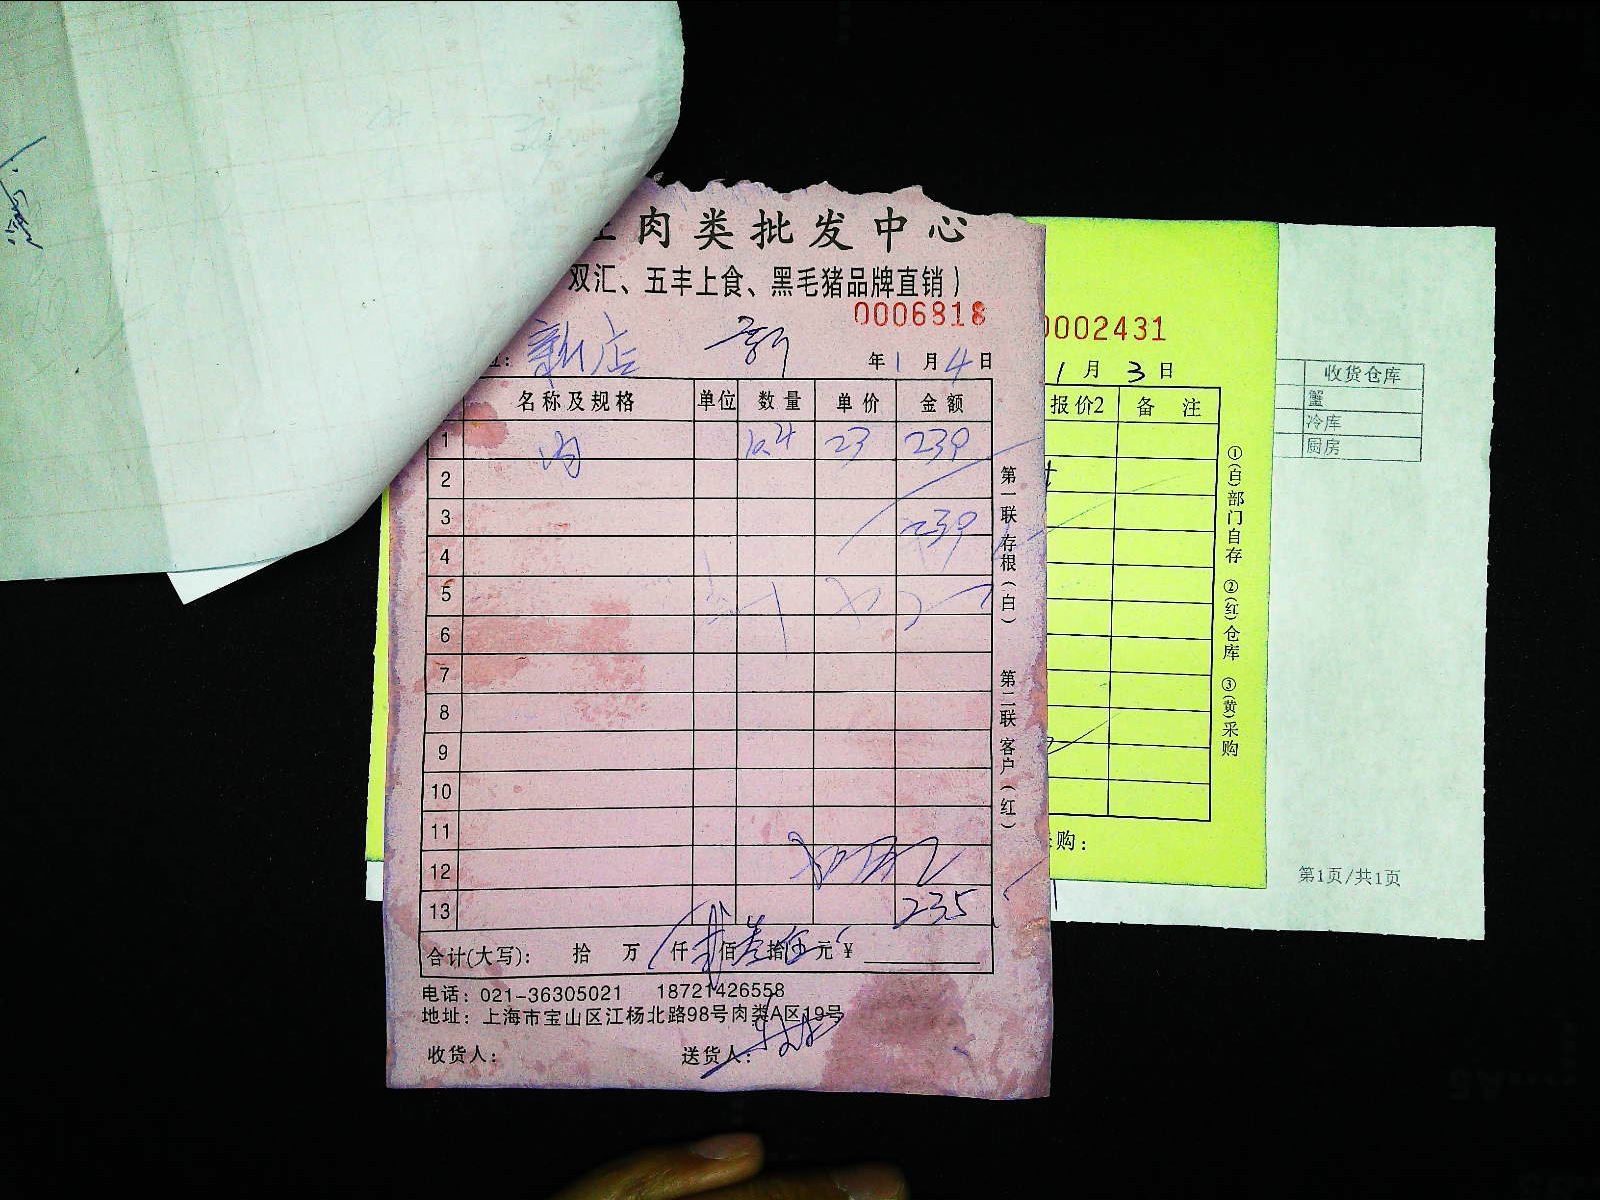 肉类批发中心
双汇、五丰上食、黑毛猪品牌直销）
0006818
新店
年1月4日
名称及规格 单位 数量 单价 金额
1 肉 10.4 23 239
2
3 239
4
5
6
7
8
9
10
11
12
13 235
合计(大写): 拾 万 仟 佰 拾 元 ¥
电话: 021-36305021 18721426558
地址: 上海市宝山区江杨北路98号肉类A区19号
收货人: 送货人:
第一联 存根(白)
第二联 客户(红)
0002431
1月3日
报价2 备 注
①(白)部门自存 ②(红)仓库 ③(黄)采购
购:
收货仓库
蟹
冷库
厨房
第1页/共1页